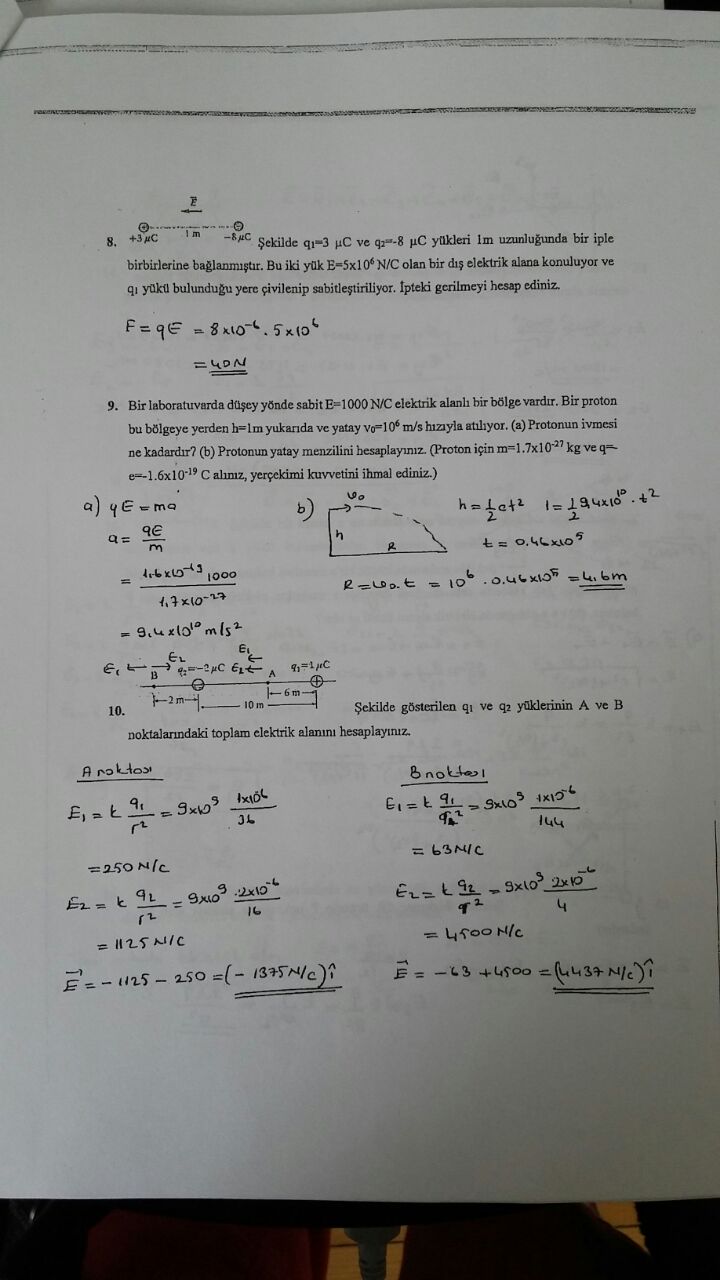 E
+3 μC 1 m -8 μC
8. Şekilde q₁=3 μC ve q₂=-8 μC yükleri 1m uzunluğunda bir iple
birbirlerine bağlanmıştır. Bu iki yük E=5x10⁶ N/C olan bir dış elektrik alana konuluyor ve
q₁ yükü bulunduğu yere çivilenip sabitleştiriliyor. İpteki gerilmeyi hesap ediniz.
F = qE = 8x10⁻⁶ . 5x10⁶
= 40N
9. Bir laboratuvarda düşey yönde sabit E=1000 N/C elektrik alanlı bir bölge vardır. Bir proton
bu bölgeye yerden h=1m yukarıda ve yatay v₀=10⁶ m/s hızıyla atılıyor. (a) Protonun ivmesi
ne kadardır? (b) Protonun yatay menzilini hesaplayınız. (Proton için m=1.7x10⁻²⁷ kg ve q=-
e=-1.6x10⁻¹⁹ C alınız, yerçekimi kuvvetini ihmal ediniz.)
a) qE = ma
a = qE/m
= 1.6x10⁻¹⁹ 1000 / 1,7x10⁻²⁷
= 9,4x10¹⁰ m/s²
b) v₀
h
R
h = 1/2 at² 1 = 1/2 9,4x10¹⁰ . t²
t = 0.46x10⁵
R = v₀.t = 10⁶ . 0.46x10⁵ = 4.6m
E₁ E₂ q₂=-2μC E₁ E₂ q₁=1μC
B A
2 m 10 m 6 m
10. Şekilde gösterilen q₁ ve q₂ yüklerinin A ve B
noktalarındaki toplam elektrik alanını hesaplayınız.
A noktası
E₁ = k q₁/r² = 9x10⁹ 1x10⁶/36
= 250 N/C
E₂ = k q₂/r² = 9x10⁹ . 2x10⁻⁶/16
= 1125 N/C
E = - 1125 - 250 = (- 1375 N/C) î
B noktası
E₁ = k q₁/r² = 9x10⁹ 1x10⁻⁶/144
= 63 N/C
E₂ = k q₂/r² = 9x10⁹ 2x10⁻⁶/4
= 4500 N/C
E = -63 + 4500 = (4437 N/C) î